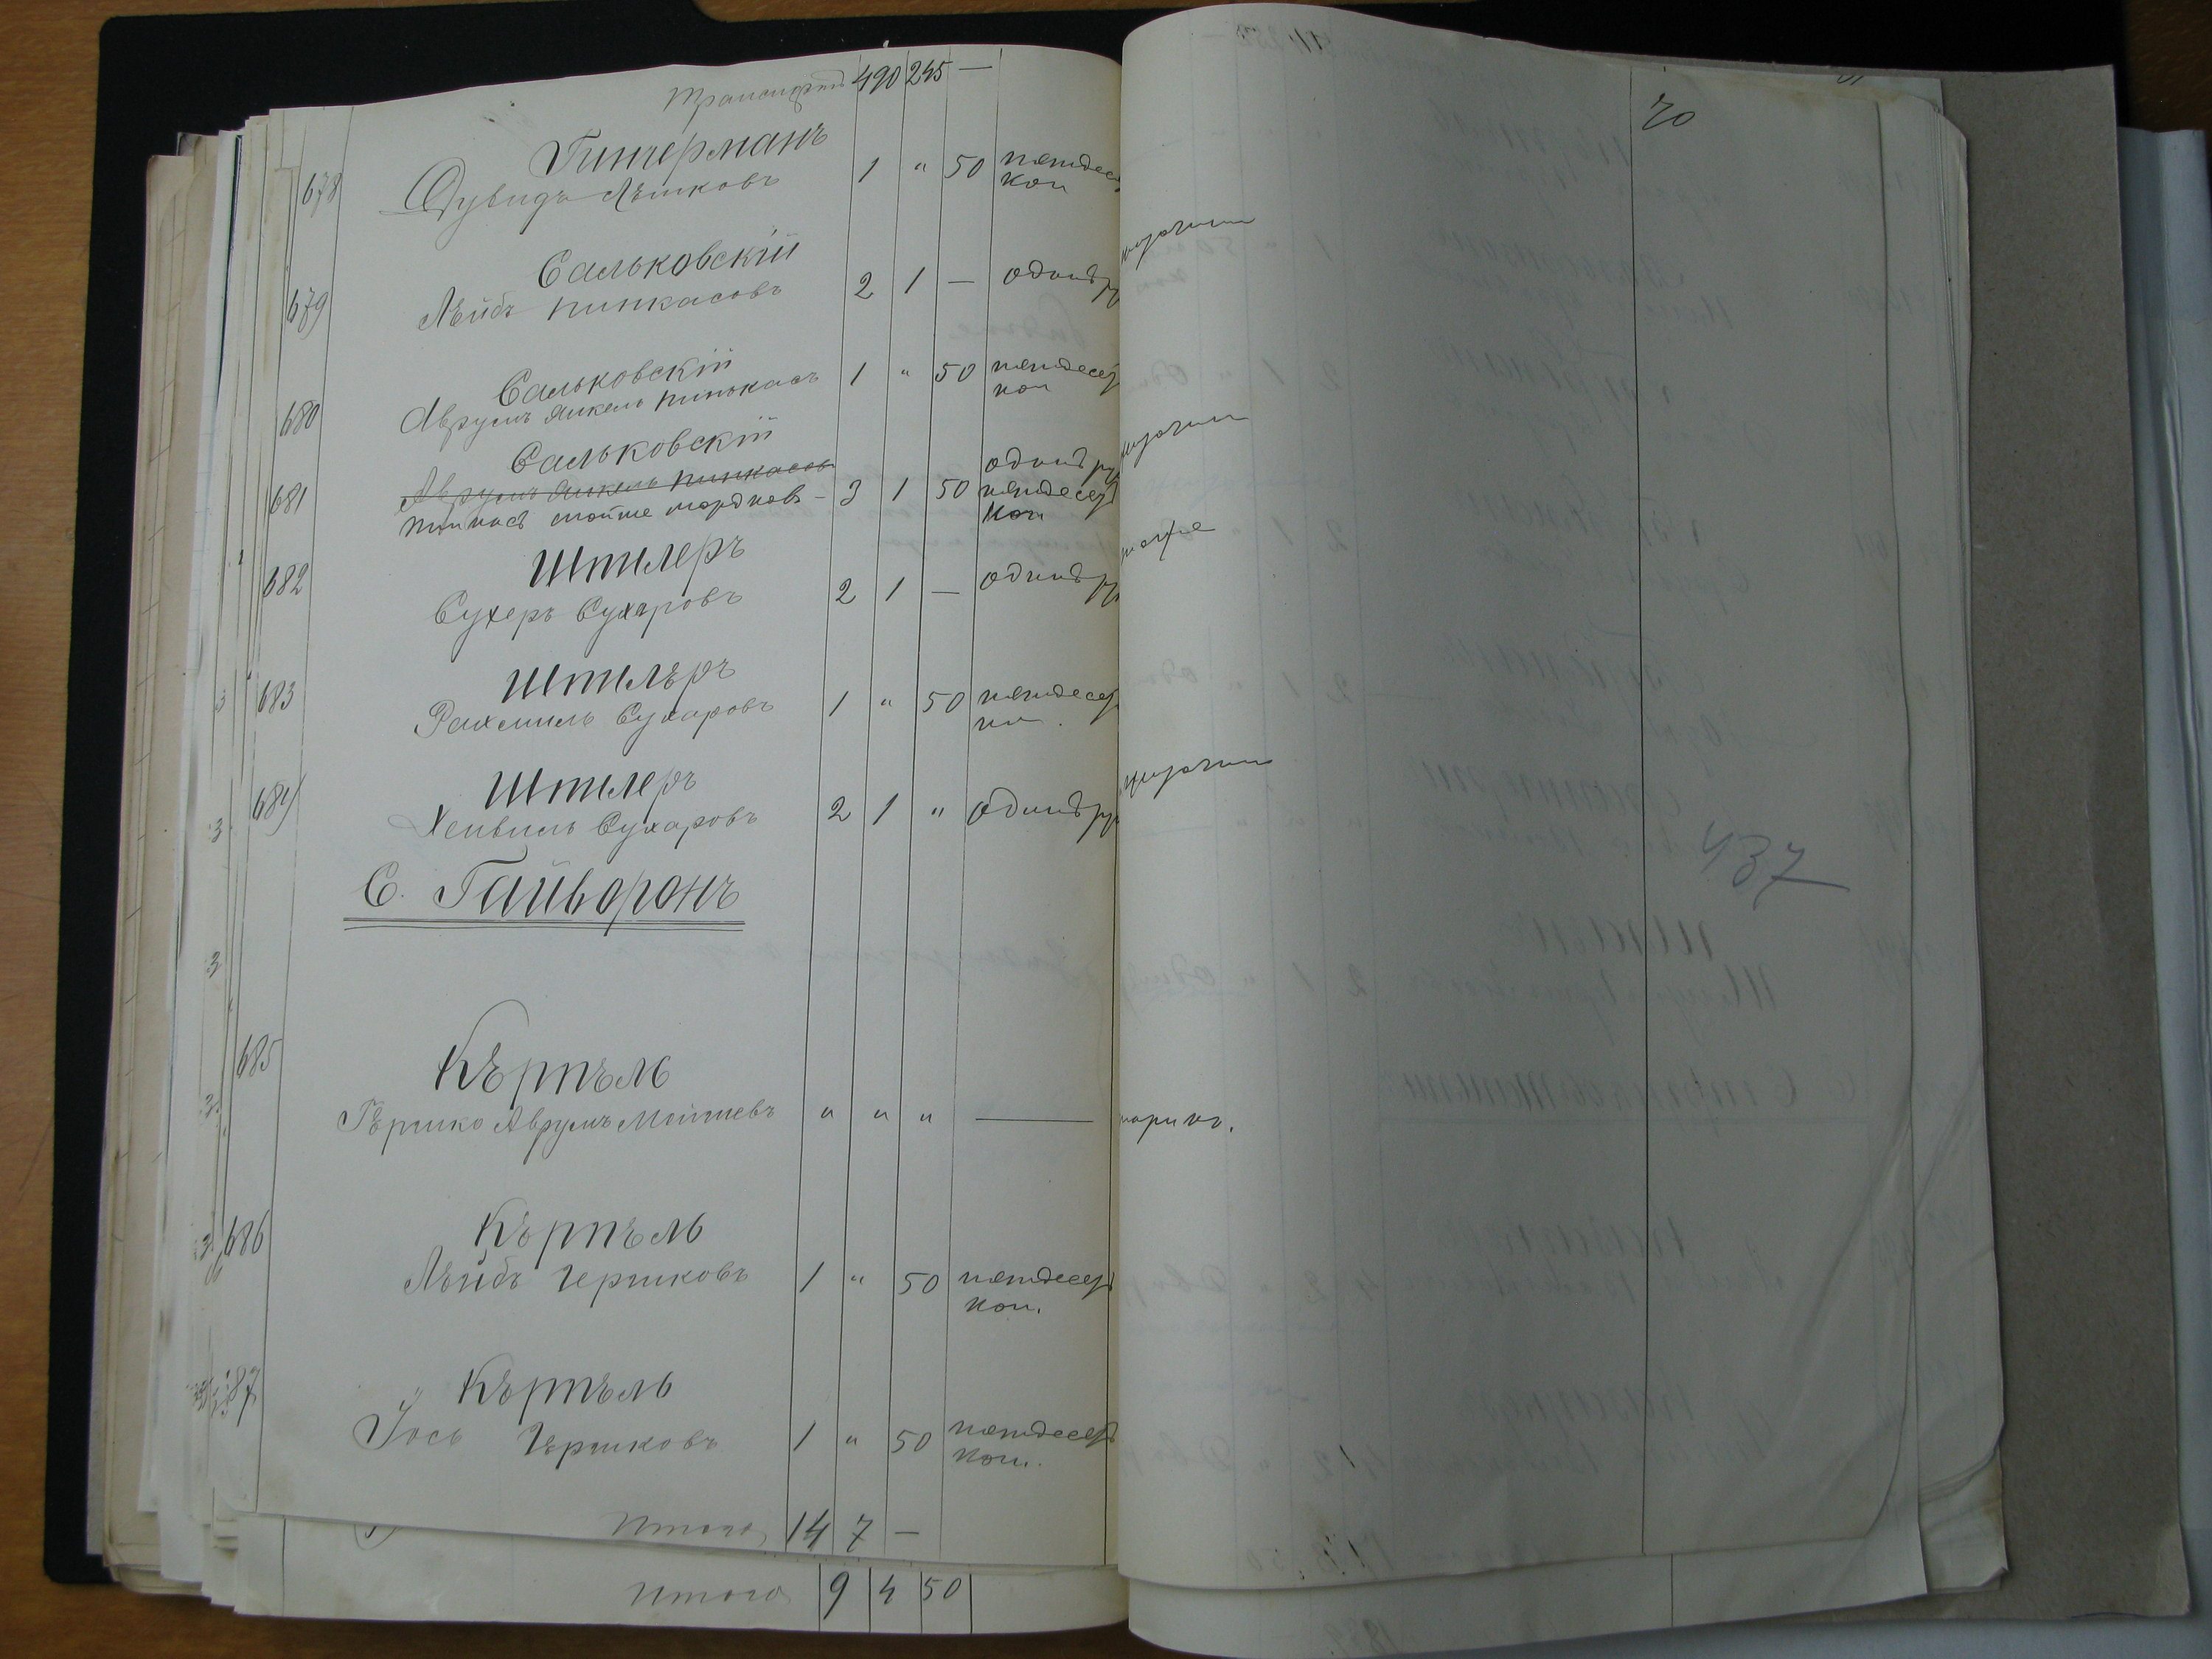 Транспортъ 490 245 —
70
678 Гитерманъ
Дувидъ Лѣйковъ 1 " 50 пятдесе
коп
679 Сальковскій
Лѣйбъ Пинкасовъ 2 1 — одинъ ру
680 Сальковскій
Аврумъ Янкель Пинькасъ 1 " 50 пятдесе
коп
681 Сальковскій
Аврумъ Янкель Пинкасов
Пинкасъ Мойше Мордков – 3 1 50 одинъ ру
пятдесе
коп
682 Штилеръ
Сухеръ Сухаровъ 2 1 — одинъ ру
683 Штилѣръ
Рахмиль Сухаровъ 1 " 50 пятдесе
коп.
684 Штилеръ
Хенвиль Сухаровъ 2 1 " одинъ ру
437
С. Гайворонъ
685 Кѣрпѣль
Гѣршко Аврумъ Мошиевъ " " " —
686 Кѣрпѣль
Лѣйбъ Гершковъ 1 " 50 пятдесе
коп.
687 Кѣрпѣль
Іось Гѣршковъ 1 " 50 пятдесе
коп.
Итого 14 7 —
Итого 9 4 50